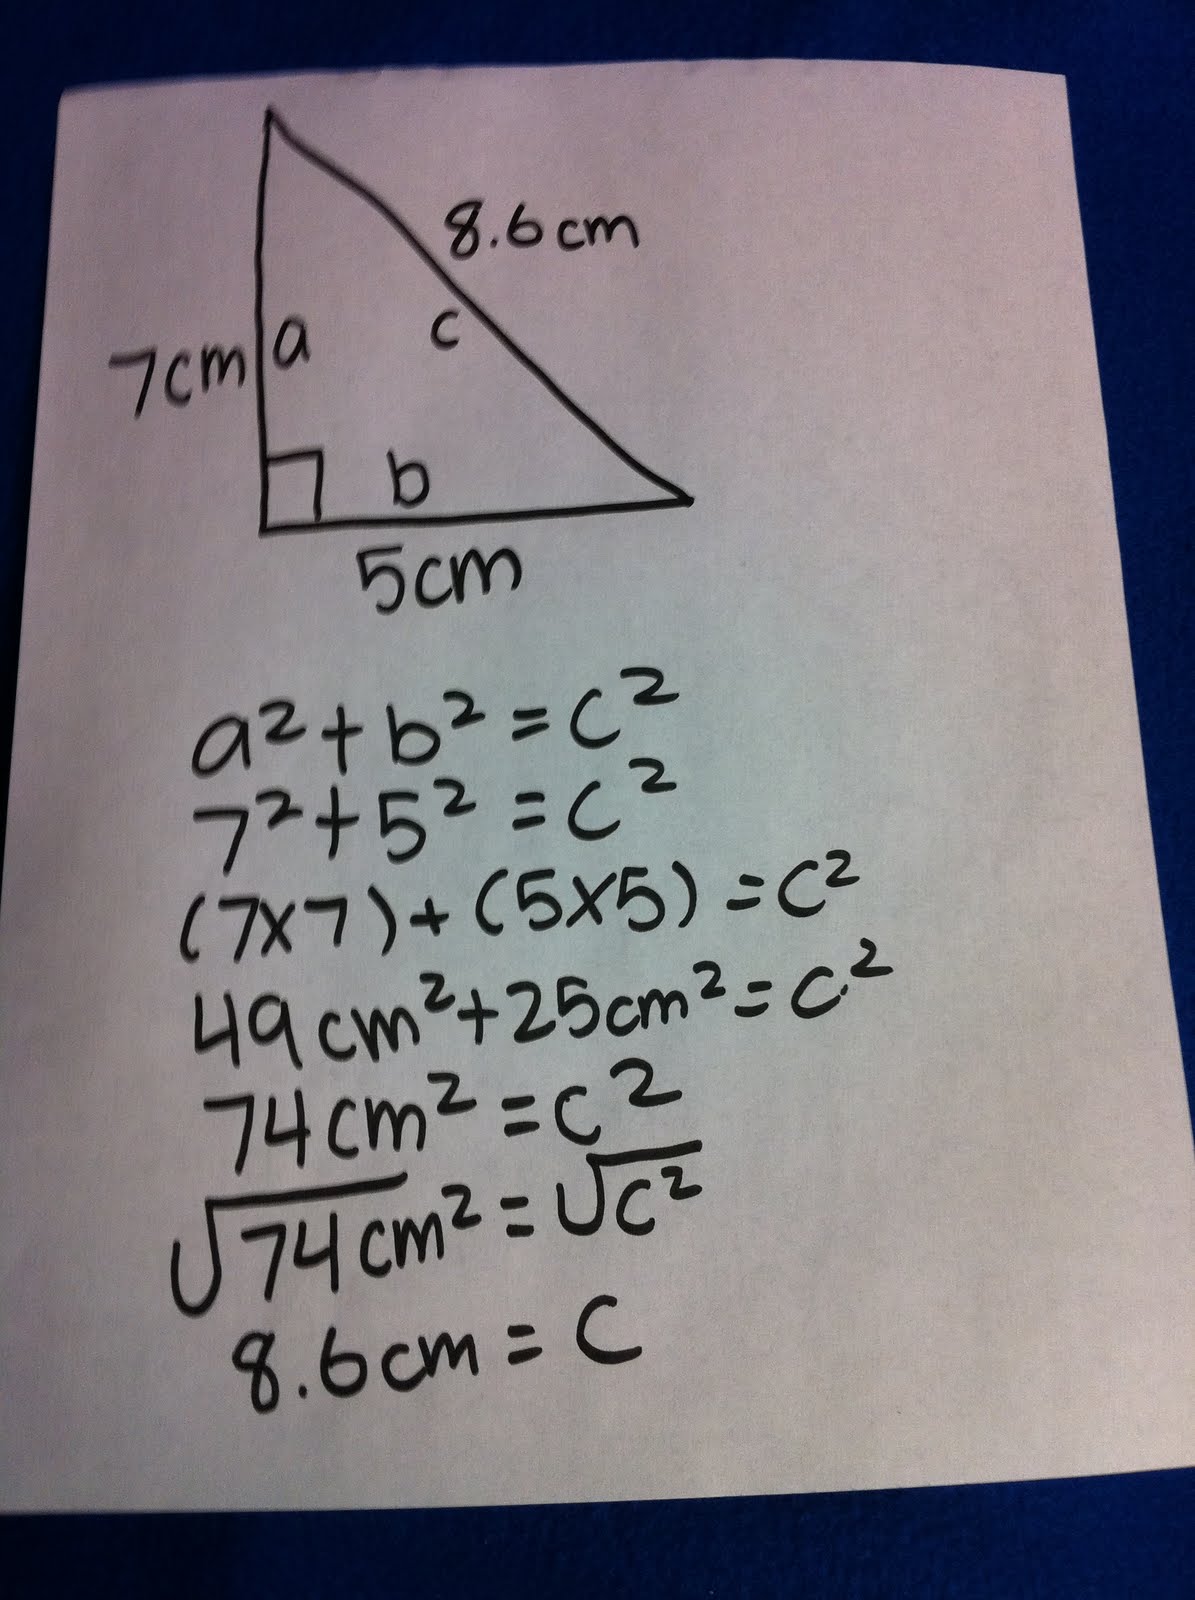 8.6cm
c
7cm a
b
5cm
a²+b²=c²
7²+5²=c²
(7x7)+(5x5)=c²
49cm²+25cm²=c²
74cm²=c²
√74cm²=√c²
8.6cm=c